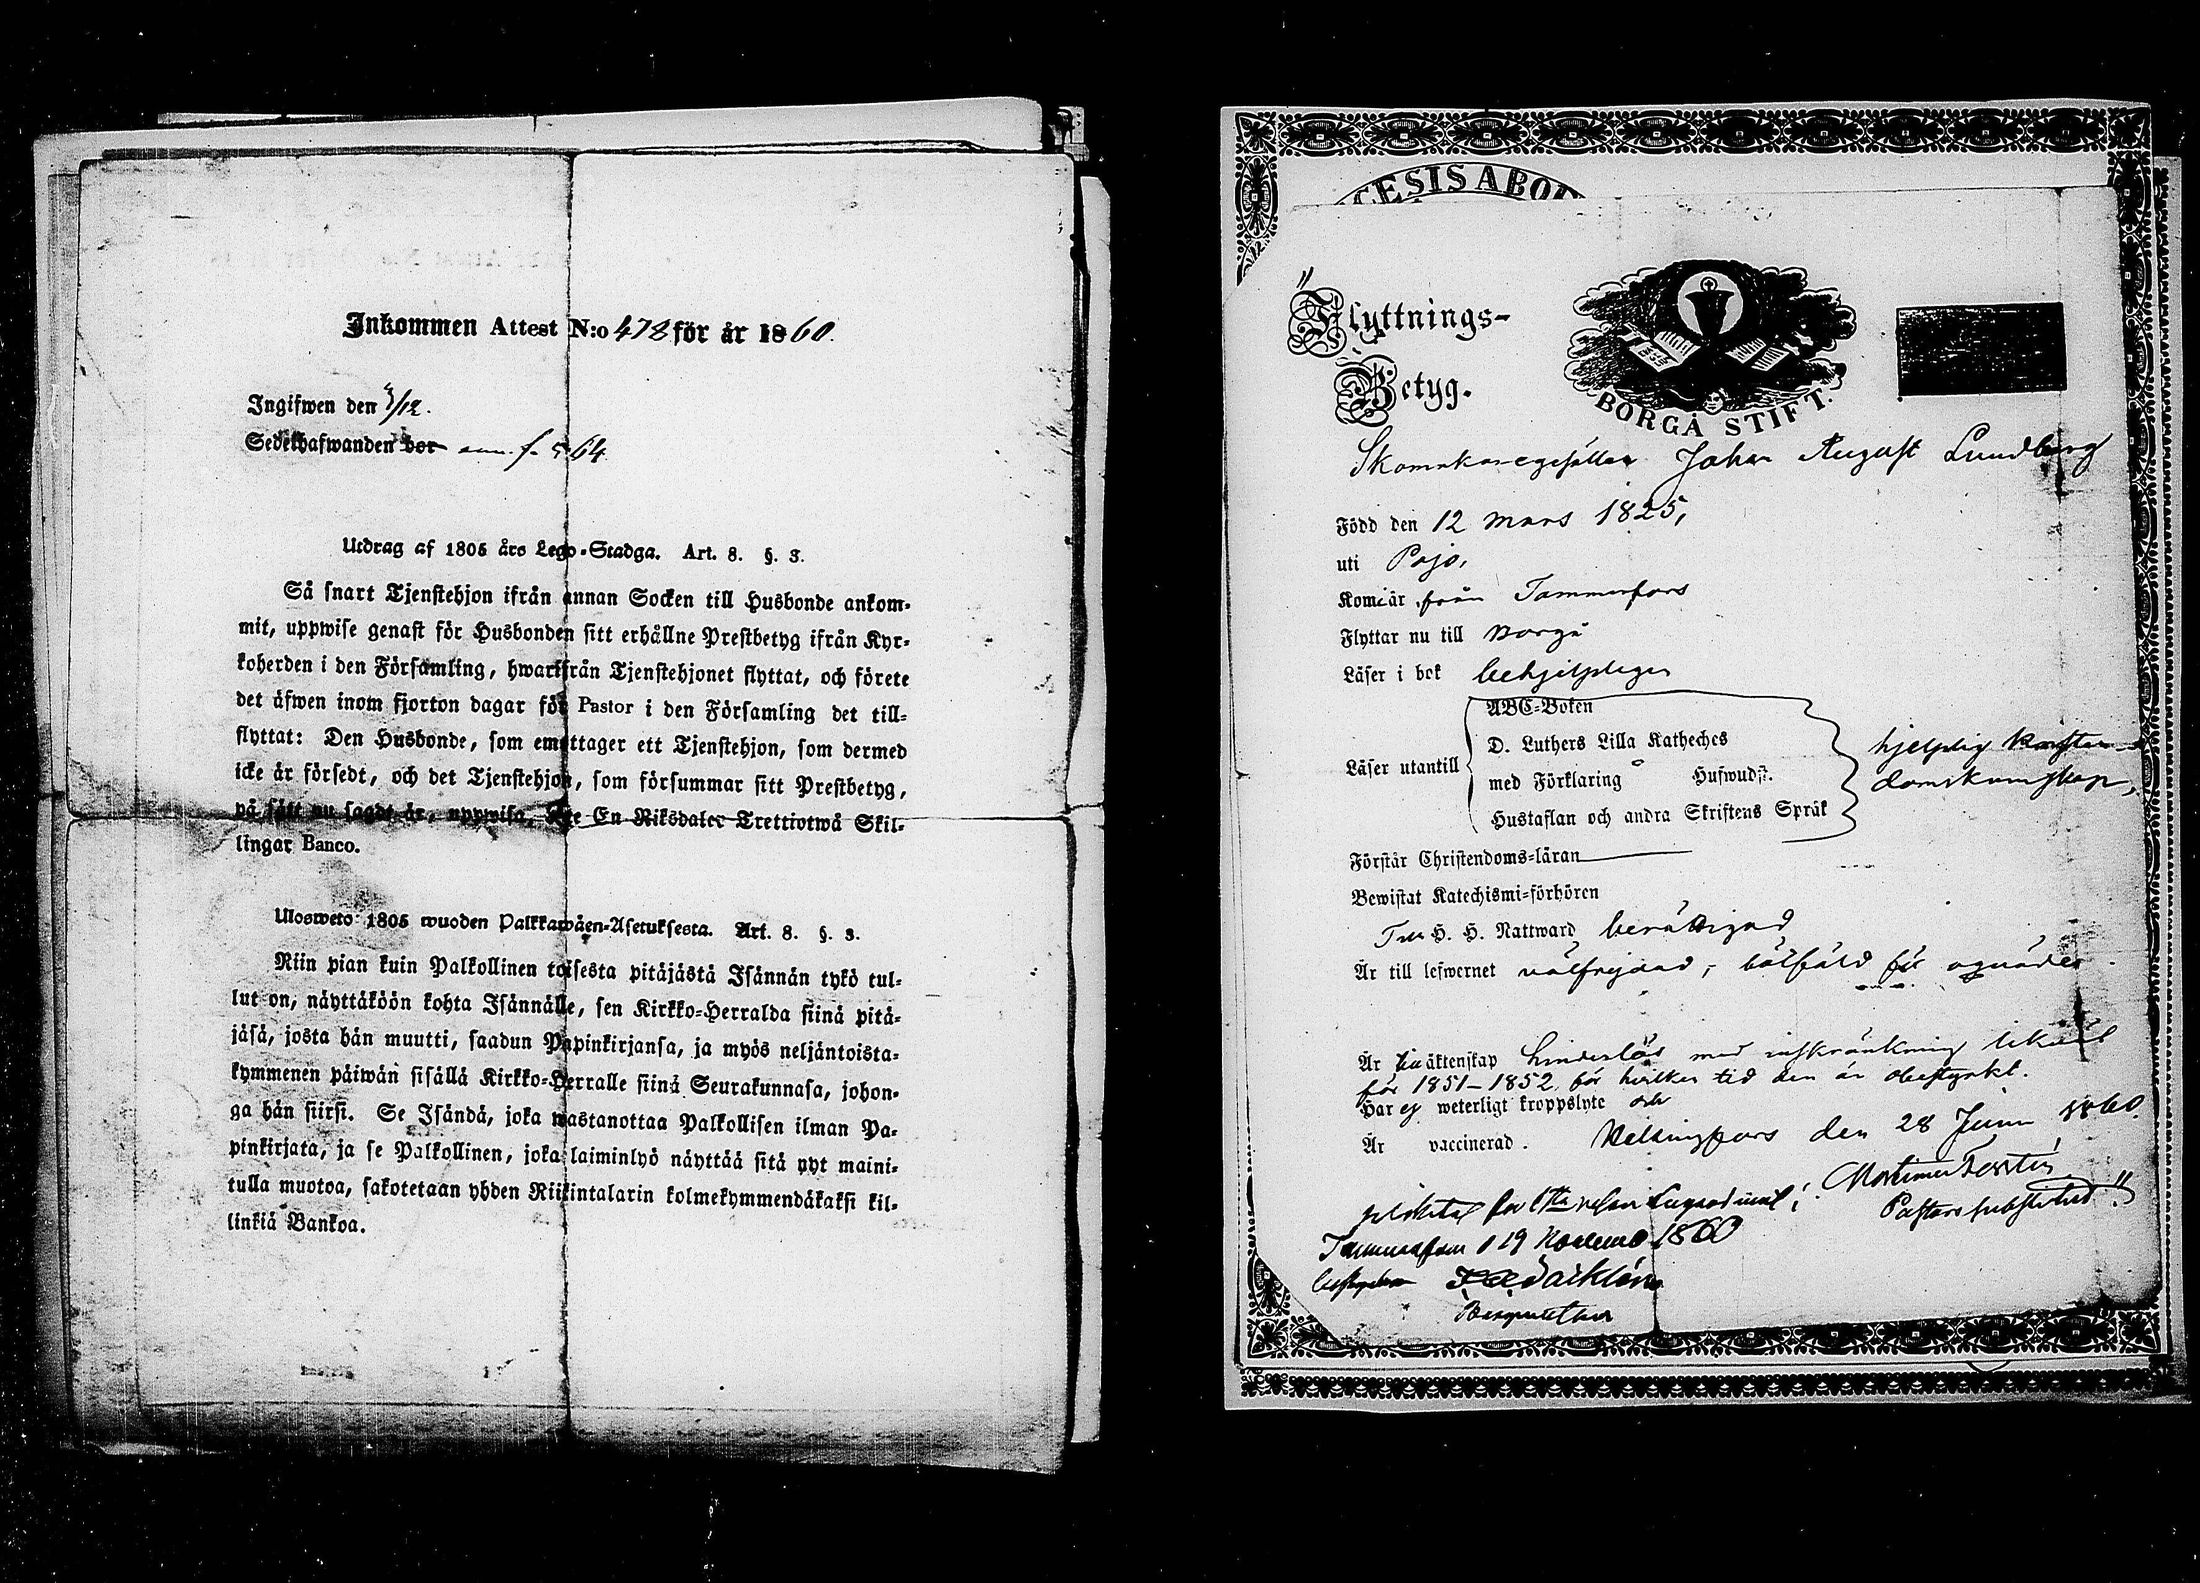 Inkommen Attest N:o 478 för år 1860.
Ingifwen den 3/12.
Sedelhafwanden bor ann. f. 564
Utdrag af 1805 års Lego-Stadga. Art. 8. §. 3.
Så snart Tjenstehjon ifrån annan Socken till Husbonde ankom-
mit, uppwise genast för Husbonden sitt erhållne Prestbetyg ifrån Kyr-
koherden i den Församling, hwarifrån Tjenstehjonet flyttat, och förete
det äfwen inom fjorton dagar för Pastor i den Församling det till-
flyttat: Den Husbonde, som emottager ett Tjenstehjon, som dermed
icke är försedt, och det Tjenstehjon, som försummar sitt Prestbetyg,
på sätt nu sagdt är, uppwisa, böte En Riksdaler Trettiotwå Skil-
lingar Banco.
Ulosweto 1805 wuoden Palkkawäen-Asetuksesta. Art. 8. §. 3.
Niin pian kuin Palkollinen toisesta pitäjästä Isännän tykö tul-
lut on, näyttäköön kohta Isännälle, sen Kirkko-Herralda siinä pitä-
jäsä, josta hän muutti, saadun Papinkirjansa, ja myös neljäntoista-
kymmenen päiwän sisällä Kirkko-Herralle siinä Seurakunnasa, johon-
ga hän siirsi. Se Isändä, joka wastanottaa Palkollisen ilman Pa-
pinkirjata, ja se Palkollinen, joka laiminlyö näyttää sitä nyt maini-
tulla muotoa, sakotetaan yhden Riikintalarin kolmekymmendäkaksi kil-
linkiä Bankoa.
CESIS ABO
"Flyttnings-
Betyg.
BORGÅ STIFT.
Skomakaregesällen Johan August Lundberg
Född den 12 Mars 1825,
uti Pojo,
Kom är från Tammerfors
Flyttar nu till Borgå
Läser i bok behjelpligen
Läser utantill
ABC-Boken
D. Luthers Lilla Katheches
med Förklaring Hufwudst.
Hustaflan och andra Skriftens Språk
hjelplig Kristen-
domskunskap,
Förstår Christendoms-läran
Bewistat Katechismi-förhören
Till H. H. Nattward berättigad
Är till lefwernet välfrejdad, bötfäld för
Är till äktenskap hinderslös med inskränkning likväl
för 1851-1852, för hvilken tid den är obestyrkt.
Har ej weterligt kroppslyte och
Är vaccinerad. Helsingfors den 28 Juni 1860.
Pastors substitut."
Tammerfors d 19 November 1860